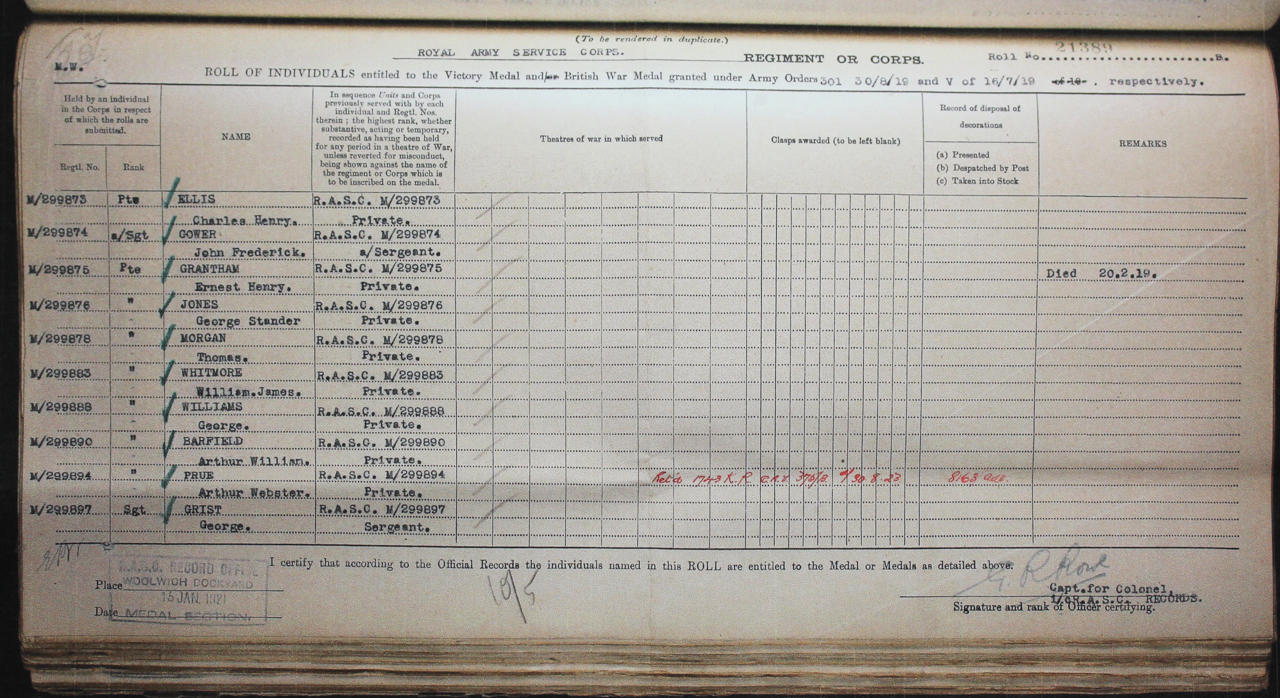 (To be rendered in duplicate.)
ROYAL ARMY SERVICE CORPS. REGIMENT OR CORPS. Roll No. 21389 B.
M.W.
ROLL OF INDIVIDUALS entitled to the Victory Medal and/or British War Medal granted under Army Orders 301 30/8/19 and V of 16/7/19 of 19 . respectively.
Held by an individual in the Corps in respect of which the rolls are submitted.
Regtl. No.
Rank
NAME
In sequence Units and Corps
previously served with by each
individual and Regtl. Nos.
therein ; the highest rank, whether
substantive, acting or temporary,
recorded as having been held
for any period in a theatre of War,
unless reverted for misconduct,
being shown against the name of
the regiment or Corps which is
to be inscribed on the medal.
Theatres of war in which served
Clasps awarded (to be left blank)
Record of disposal of
decorations
(a) Presented
(b) Despatched by Post
(c) Taken into Stock
REMARKS
M/299873 Pte ELLIS R.A.S.C. M/299873
Charles Henry. Private.
M/299874 a/Sgt GOWER R.A.S.C. M/299874
John Frederick. a/Sergeant.
M/299875 Pte GRANTHAM R.A.S.C. M/299875 Died 20.2.19.
Ernest Henry. Private.
M/299876 " JONES R.A.S.C. M/299876
George Stander Private.
M/299878 " MORGAN R.A.S.C. M/299878
Thomas. Private.
M/299883 " WHITMORE R.A.S.C. M/299883
William.James. Private.
M/299888 " WILLIAMS R.A.S.C. M/299888
George. Private.
M/299890 " BARFIELD R.A.S.C. M/299890
Arthur William. Private.
M/299894 " PRUE R.A.S.C. M/299894 Ret'd 1743 K.R. 30.8.23 8163
Arthur Webster. Private.
M/299897 Sgt GRIST R.A.S.C. M/299897
George. Sergeant.
I certify that according to the Official Records the individuals named in this ROLL are entitled to the Medal or Medals as detailed above.
R.A.S.C. RECORD OFFICE
Place WOOLWICH DOCKYARD
15 JAN. 1921
Date MEDAL SECTION.
10/5
Capt.for Colonel,
i/c R.A.S.C. RECORDS.
Signature and rank of Officer certifying.